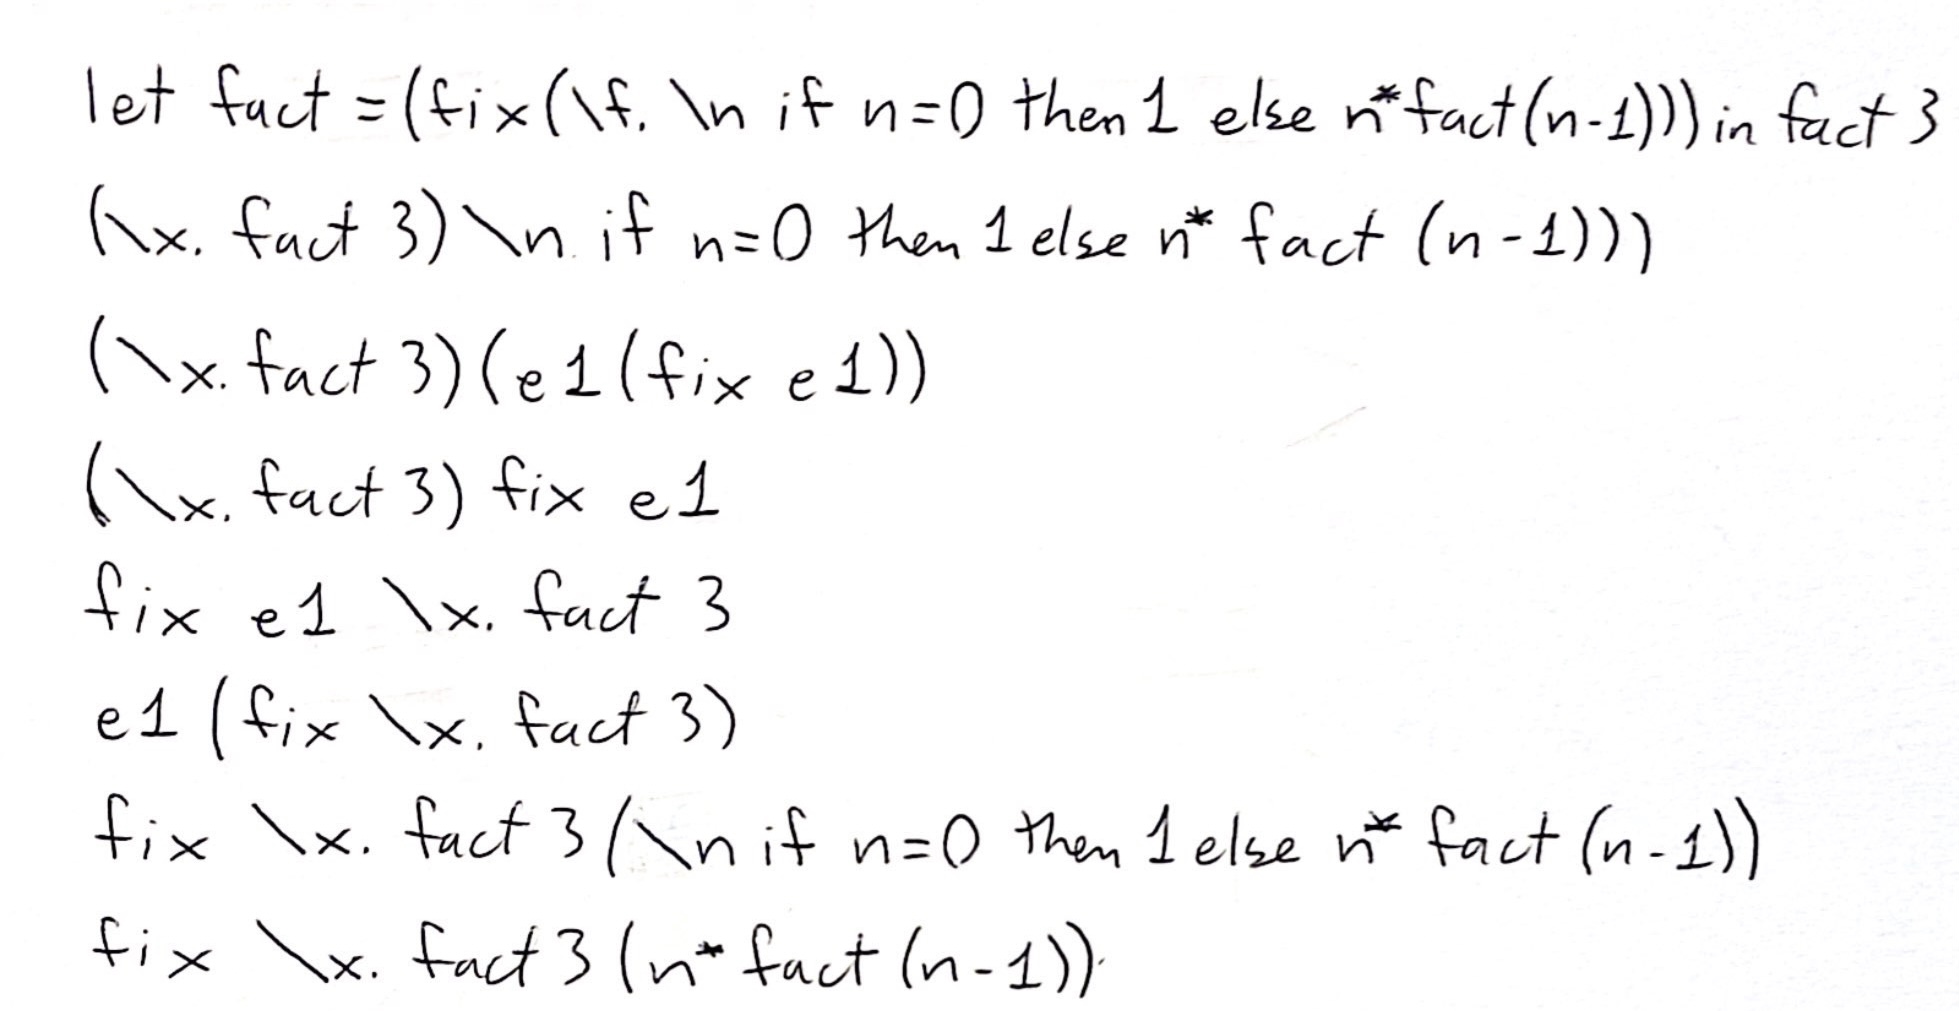 let fact = (fix(\f. \n if n=0 then 1 else n*fact(n-1))) in fact 3
(\x. fact 3) \n. if n=0 then 1 else n* fact (n-1)))
(\x. fact 3)(e1(fix e1))
(\x. fact 3) fix e1
fix e1 \x. fact 3
e1 (fix \x. fact 3)
fix \x. fact 3 (\n if n=0 then 1 else n* fact (n-1))
fix \x. fact 3 (n* fact (n-1))